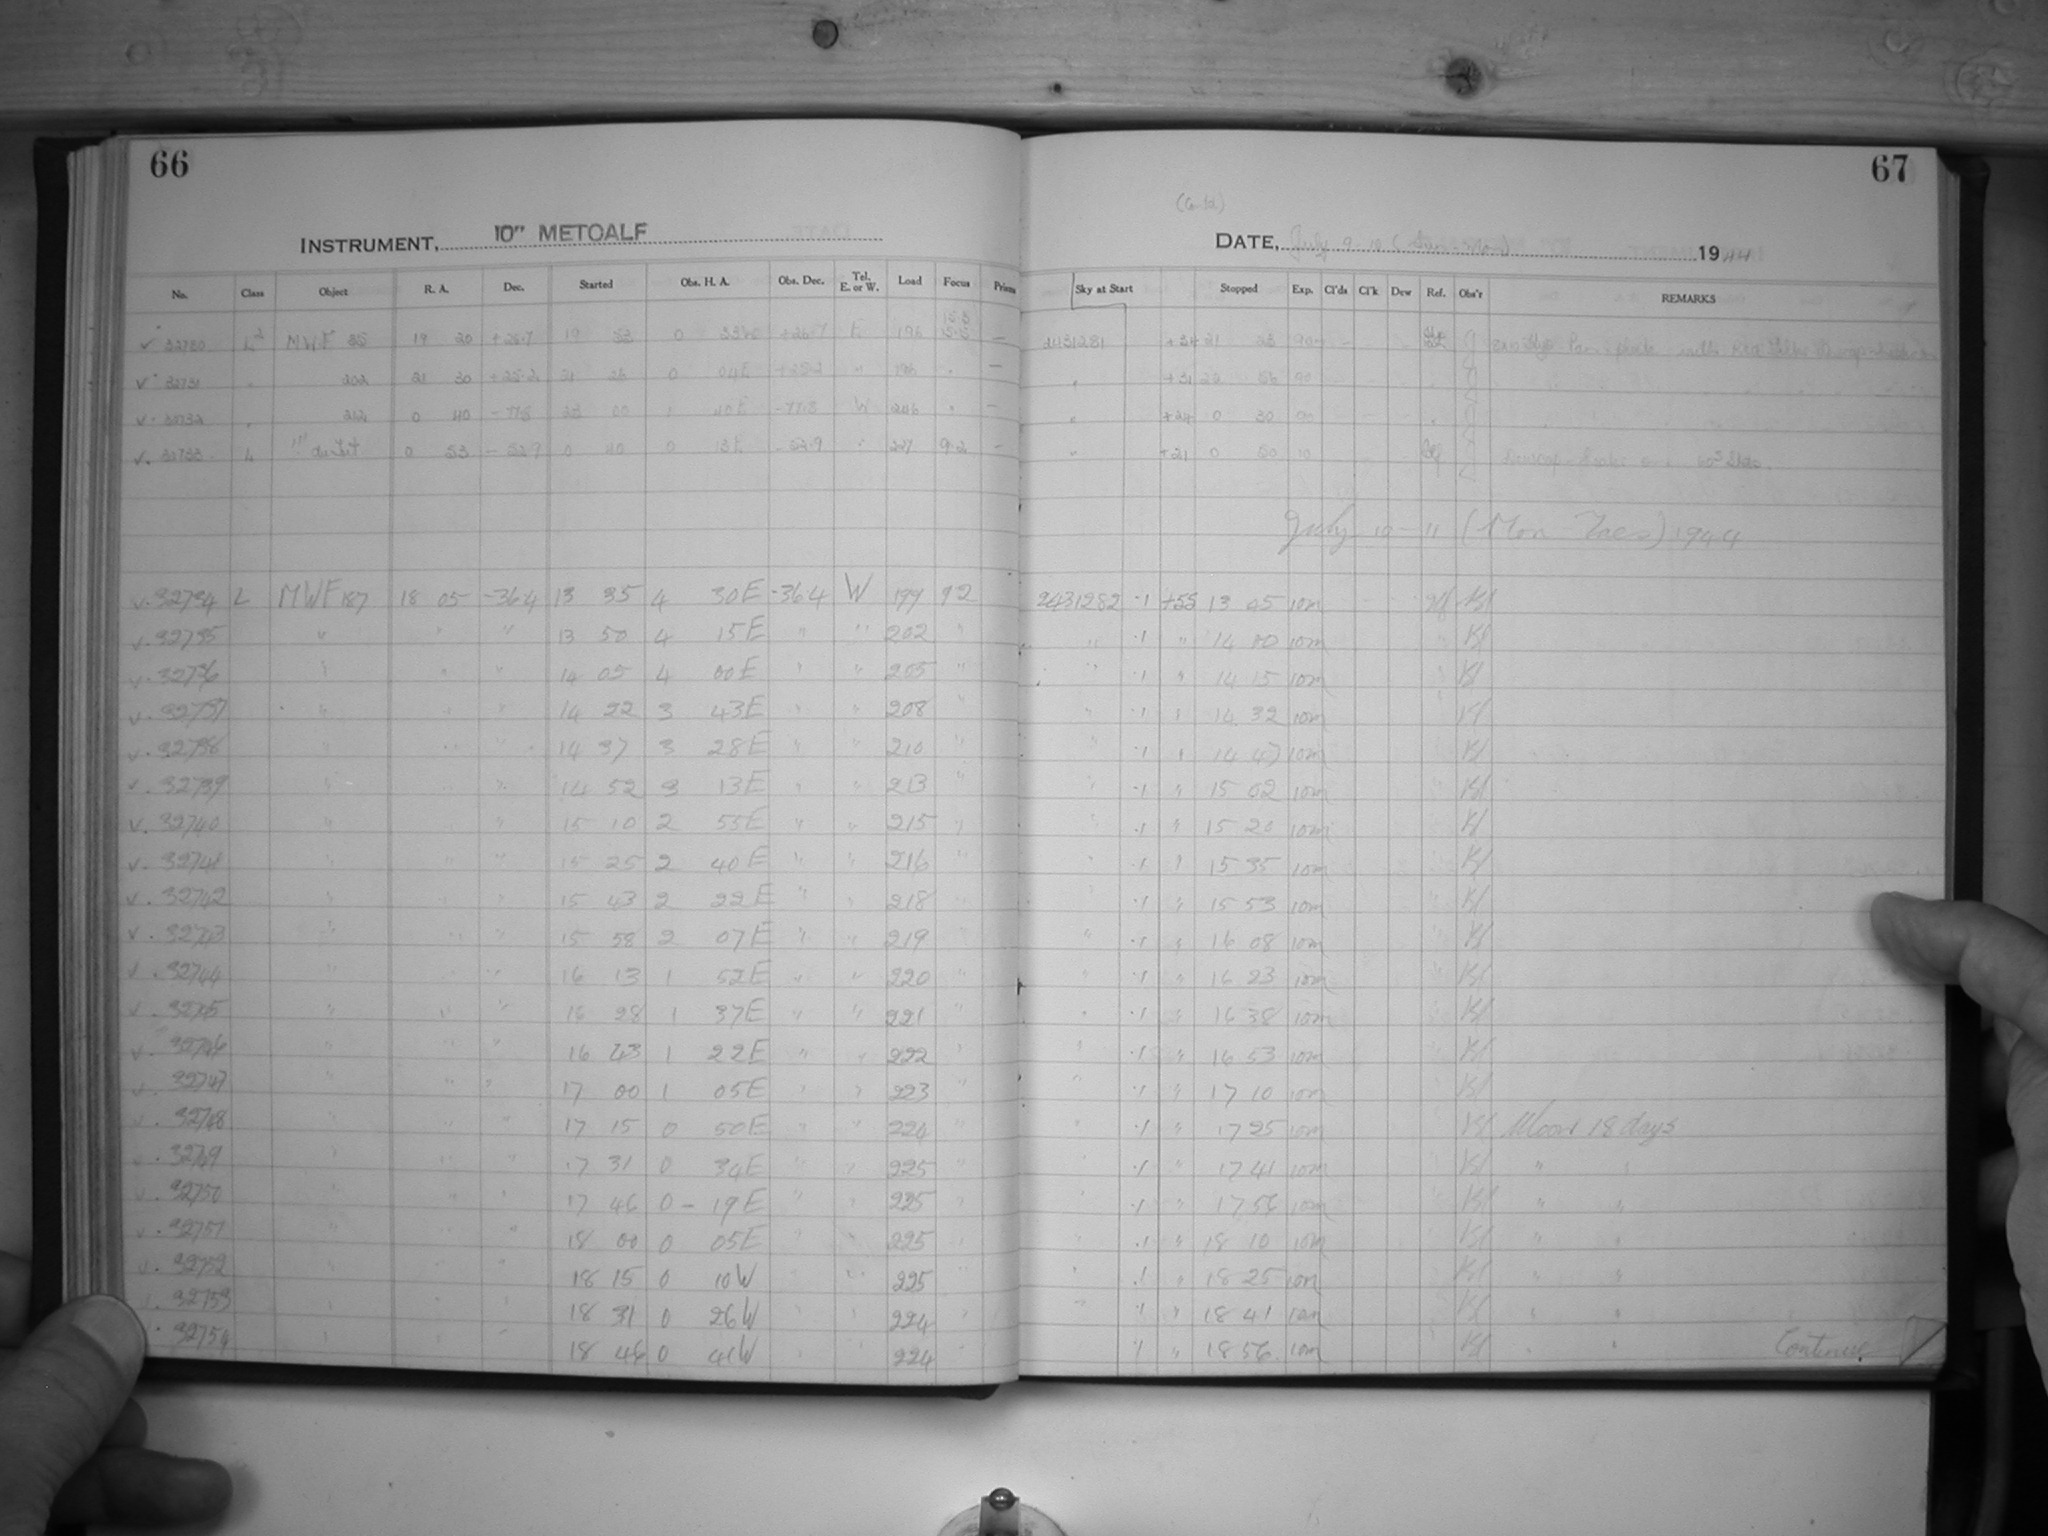 66
67
INSTRUMENT, 10" METCALF
DATE, July 9-10 (Sun-Mon) 1944
No. Class Object R. A. Dec. Started Obs. H. A. Obs. Dec. Tel. E. or W. Load Focus Prism Sky at Start Stopped Exp. Cl'ds Cl'k Dew Ref. Obs'r REMARKS
v 32730 MWF 19 20 +26.7 19 53 0 +26.7 E 196 — 2431281 +34 21 23 90
v 32731 " 202 21 30 +25.2 21 26 0 04E +25.2 " " — " +31 22 56 90
v 32732 " 212 0 40 -77.3 23 00 1 40E -77.3 W 246 " — " +24 0 30 90
v 32733 L 0 53 -52.7 0 40 0 13E -52.9 " 227 9.2 — " +21 0 50 10
July 10-11 (Mon Tues) 1944
v 32734 L MWF 187 18 05 -36.4 13 35 4 30E -36.4 W 199 9.2 2431282 .1 +55 13 05 10m Kl
v 32735 " " " 13 50 4 15E " " 202 " " .1 " 14 00 10m " Kl
v 32736 " " " 14 05 4 00E " " 205 " " .1 " 14 15 10m " Kl
v 32737 " " " 14 22 3 43E " " 208 " " .1 " 14 32 10m " Kl
v 32738 " " " 14 37 3 28E " " 210 " " .1 " 14 47 10m " Kl
v 32739 " " " 14 52 3 13E " " 213 " " .1 " 15 02 10m " Kl
v 32740 " " 15 10 2 55E " " 215 " " .1 " 15 20 10m " Kl
v 32741 " " " 15 25 2 40E " " 216 " " .1 " 15 35 10m " Kl
v 32742 " " " 15 43 2 22E " " 218 " " .1 " 15 53 10m " Kl
v 32743 " " " 15 58 2 07E " " 219 " " .1 " 16 08 10m " Kl
v 32744 " " 16 13 1 52E " " 220 " " .1 " 16 23 10m " Kl
v 32745 " " " 16 28 1 37E " " 221 " " .1 " 16 38 10m " Kl
v 32746 " " " 16 43 1 22E " " 222 " " .1 " 16 53 10m " Kl
v 32747 " " " 17 00 1 05E " " 223 " " .1 " 17 10 10m " Kl
v 32748 " " " 17 15 0 50E " " 224 " " .1 " 17 25 10m " Kl Moon 18 days
v 32749 " " " 17 31 0 34E " " 225 " " .1 " 17 41 10m " Kl " "
v 32750 " " " 17 46 0 - 19E " " 225 " " .1 " 17 56 10m " Kl " "
v 32751 " " " 18 00 0 05E " " 225 " " .1 " 18 10 10m " Kl " "
v 32752 " " " 18 15 0 10W " 225 " " .1 " 18 25 10m " Kl " "
v 32753 " " " 18 31 0 26W " " 224 " " .1 " 18 41 10m " Kl " "
v 32754 " " " 18 46 0 41W " " 224 " .1 " 18 56 10m " Kl " " Continue